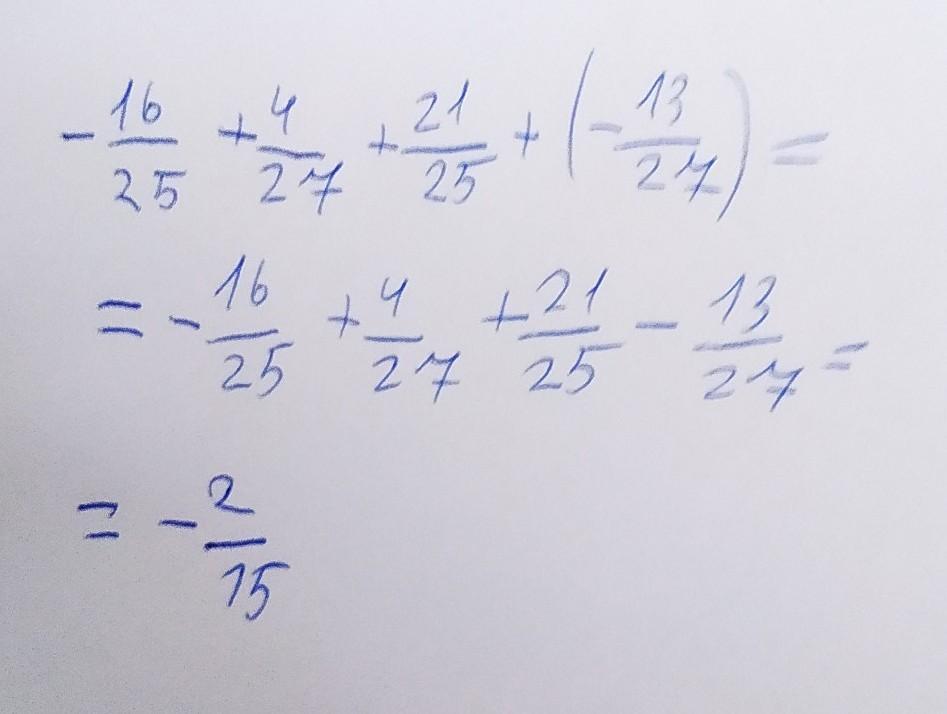 -16/25 + 4/27 + 21/25 + (-13/27) =
= -16/25 + 4/27 + 21/25 - 13/27 =
= -2/15